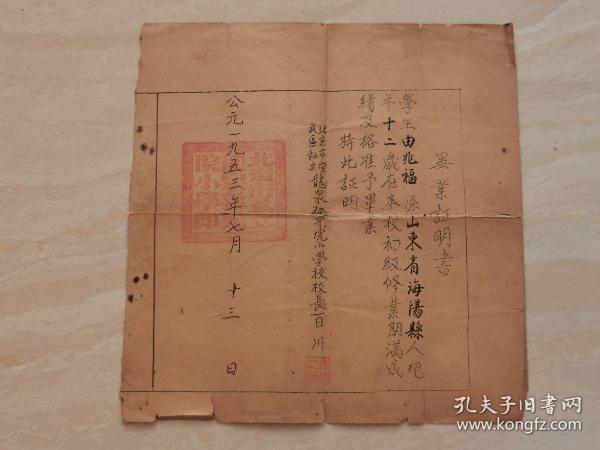 畢業証明書
學生由兆福係山東省海陽縣人現
年十二歲在本校初級修業期滿成
績及格准予畢業
特此証明
北京市宣
武區私立龍泉孤兒院小學校校長百川
公元一九五三年七月十三日
孔夫子旧书网
www.kongfz.com